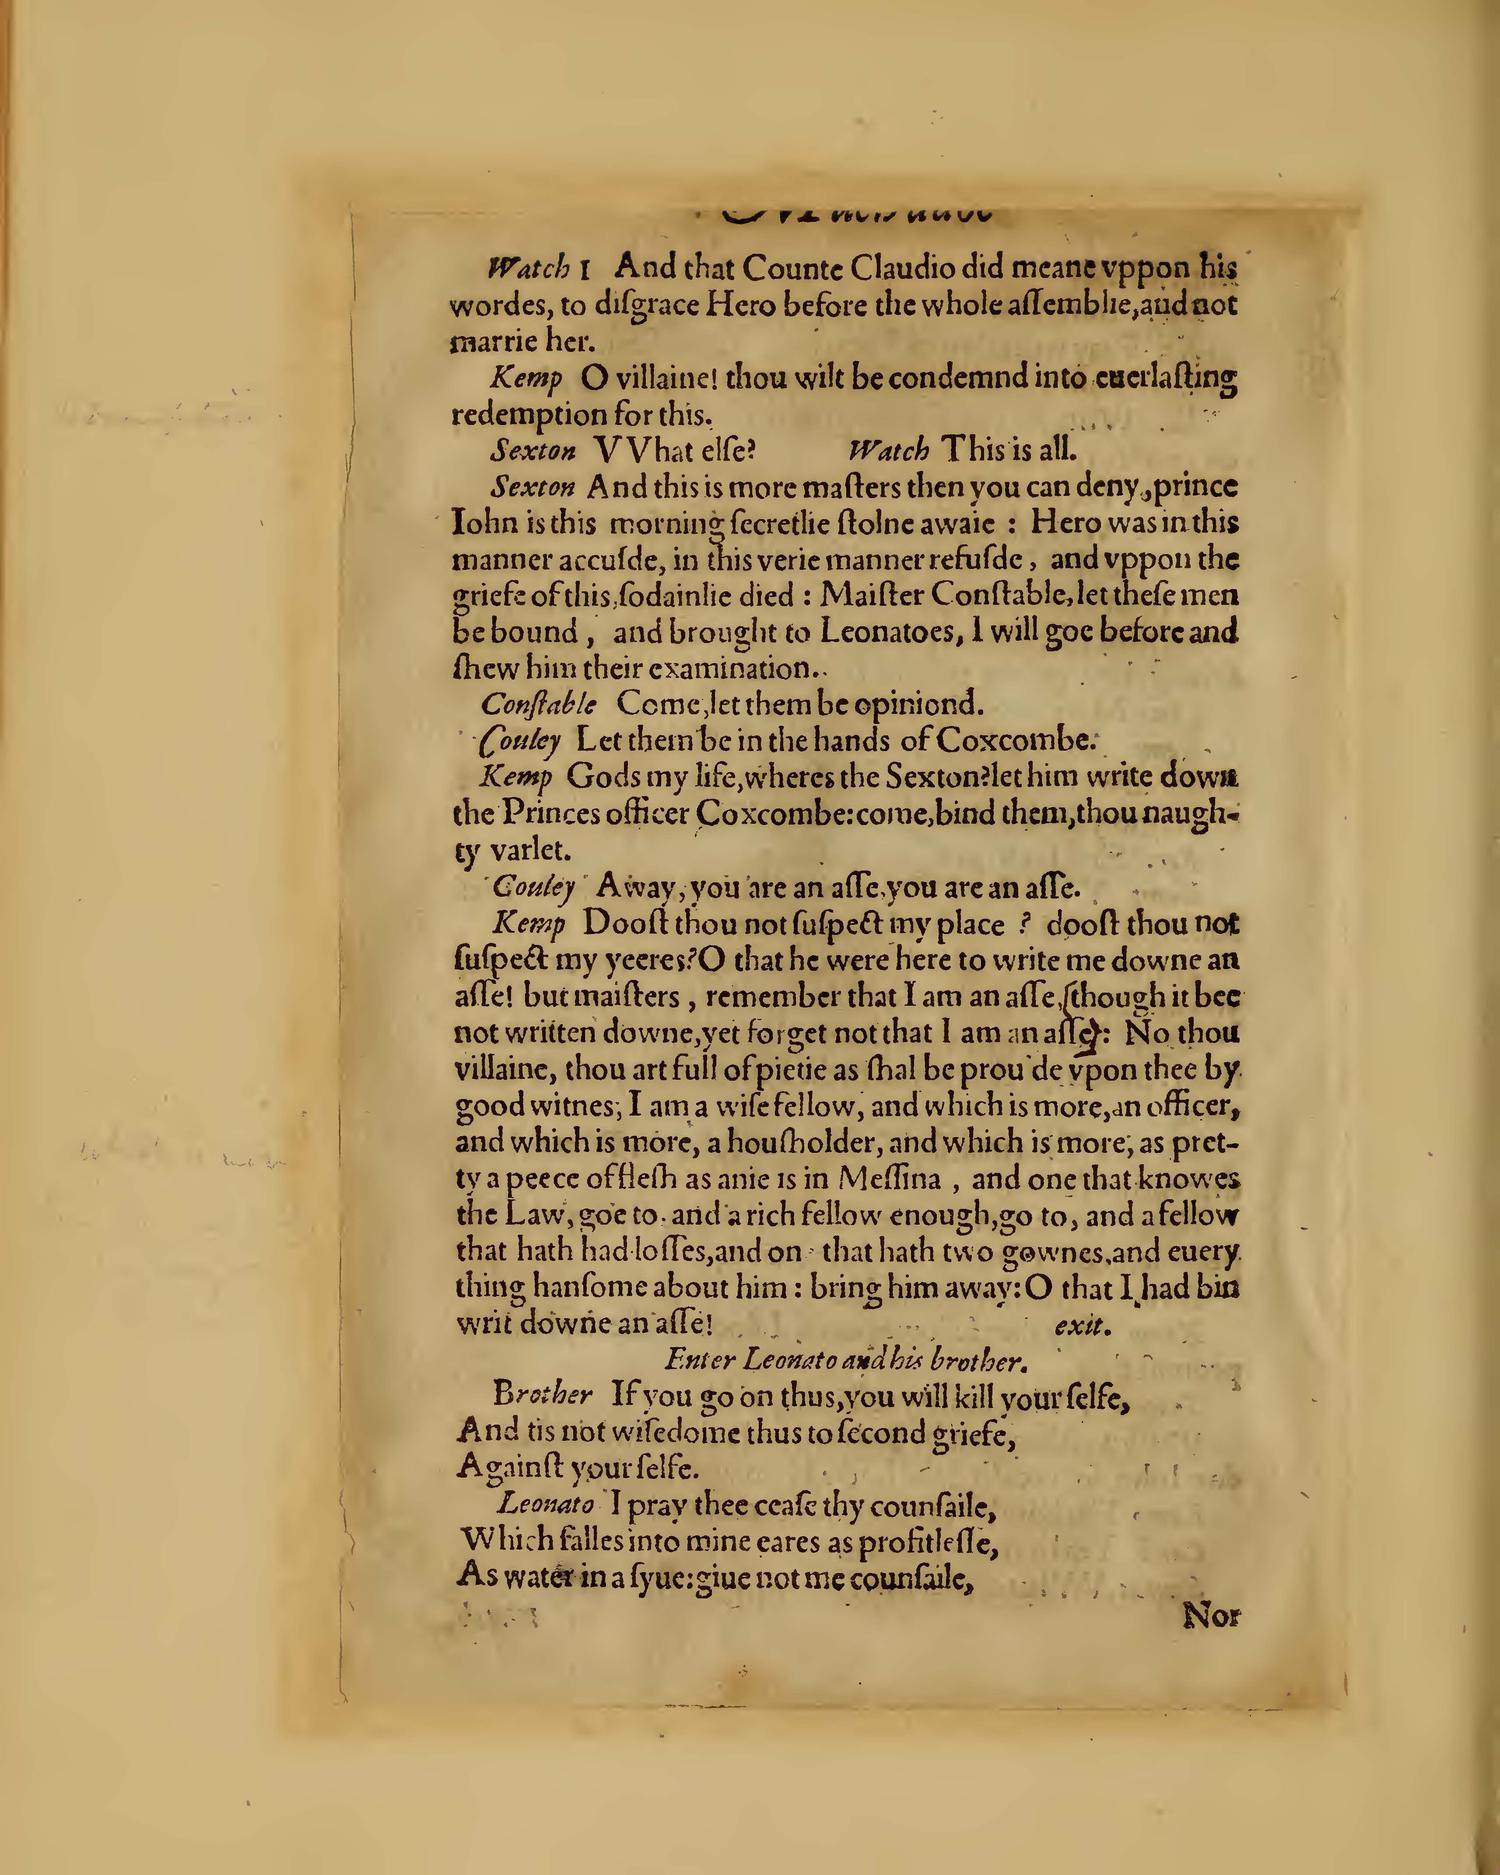 Watch 1 And that Counte Claudio did meane vppon his
wordes, to diſgrace Hero before the whole aſſemblie,and not
marrie her.
Kemp O villaine! thou wilt be condemnd into euerlaſting
redemption for this.
Sexton VVhat elſe? Watch This is all.
Sexton And this is more maſters then you can deny, prince
Iohn is this morning ſecretlie ſtolne awaie : Hero was in this
manner accuſde, in this verie manner refuſde, and vppon the
griefe of this, ſodainlie died : Maiſter Conſtable, let theſe men
be bound, and brought to Leonatoes, I will goe before and
ſhew him their examination.
Conſtable Come, let them be opiniond.
Couley Let them be in the hands of Coxcombe.
Kemp Gods my life, wheres the Sexton? let him write down
the Princes officer Coxcombe: come, bind them, thou naugh-
ty varlet.
Couley Away, you are an aſſe, you are an aſſe.
Kemp Dooſt thou not ſuſpect my place ? dooſt thou not
ſuſpect my yeeres? O that he were here to write me downe an
aſſe! but maiſters, remember that I am an aſſe, though it bee
not written downe, yet forget not that I am an aſſe: No thou
villaine, thou art full of pietie as ſhal be prou'de vpon thee by
good witnes, I am a wiſe fellow, and which is more, an officer,
and which is more, a houſholder, and which is more, as pret-
ty a peece of fleſh as anie is in Meſſina , and one that knowes
the Law, goe to, and a rich fellow enough, go to, and a fellow
that hath had loſſes, and on that hath two gownes, and euery
thing hanſome about him : bring him away: O that I had bin
writ downe an aſſe! exit.
Enter Leonato and his brother.
Brother If you go on thus, you will kill your ſelfe,
And tis not wiſedome thus to ſecond griefe,
Againſt your ſelfe.
Leonato I pray thee ceaſe thy counſaile,
Which falles into mine eares as profitleſſe,
As water in a ſyue: giue not me counſaile,
Nor